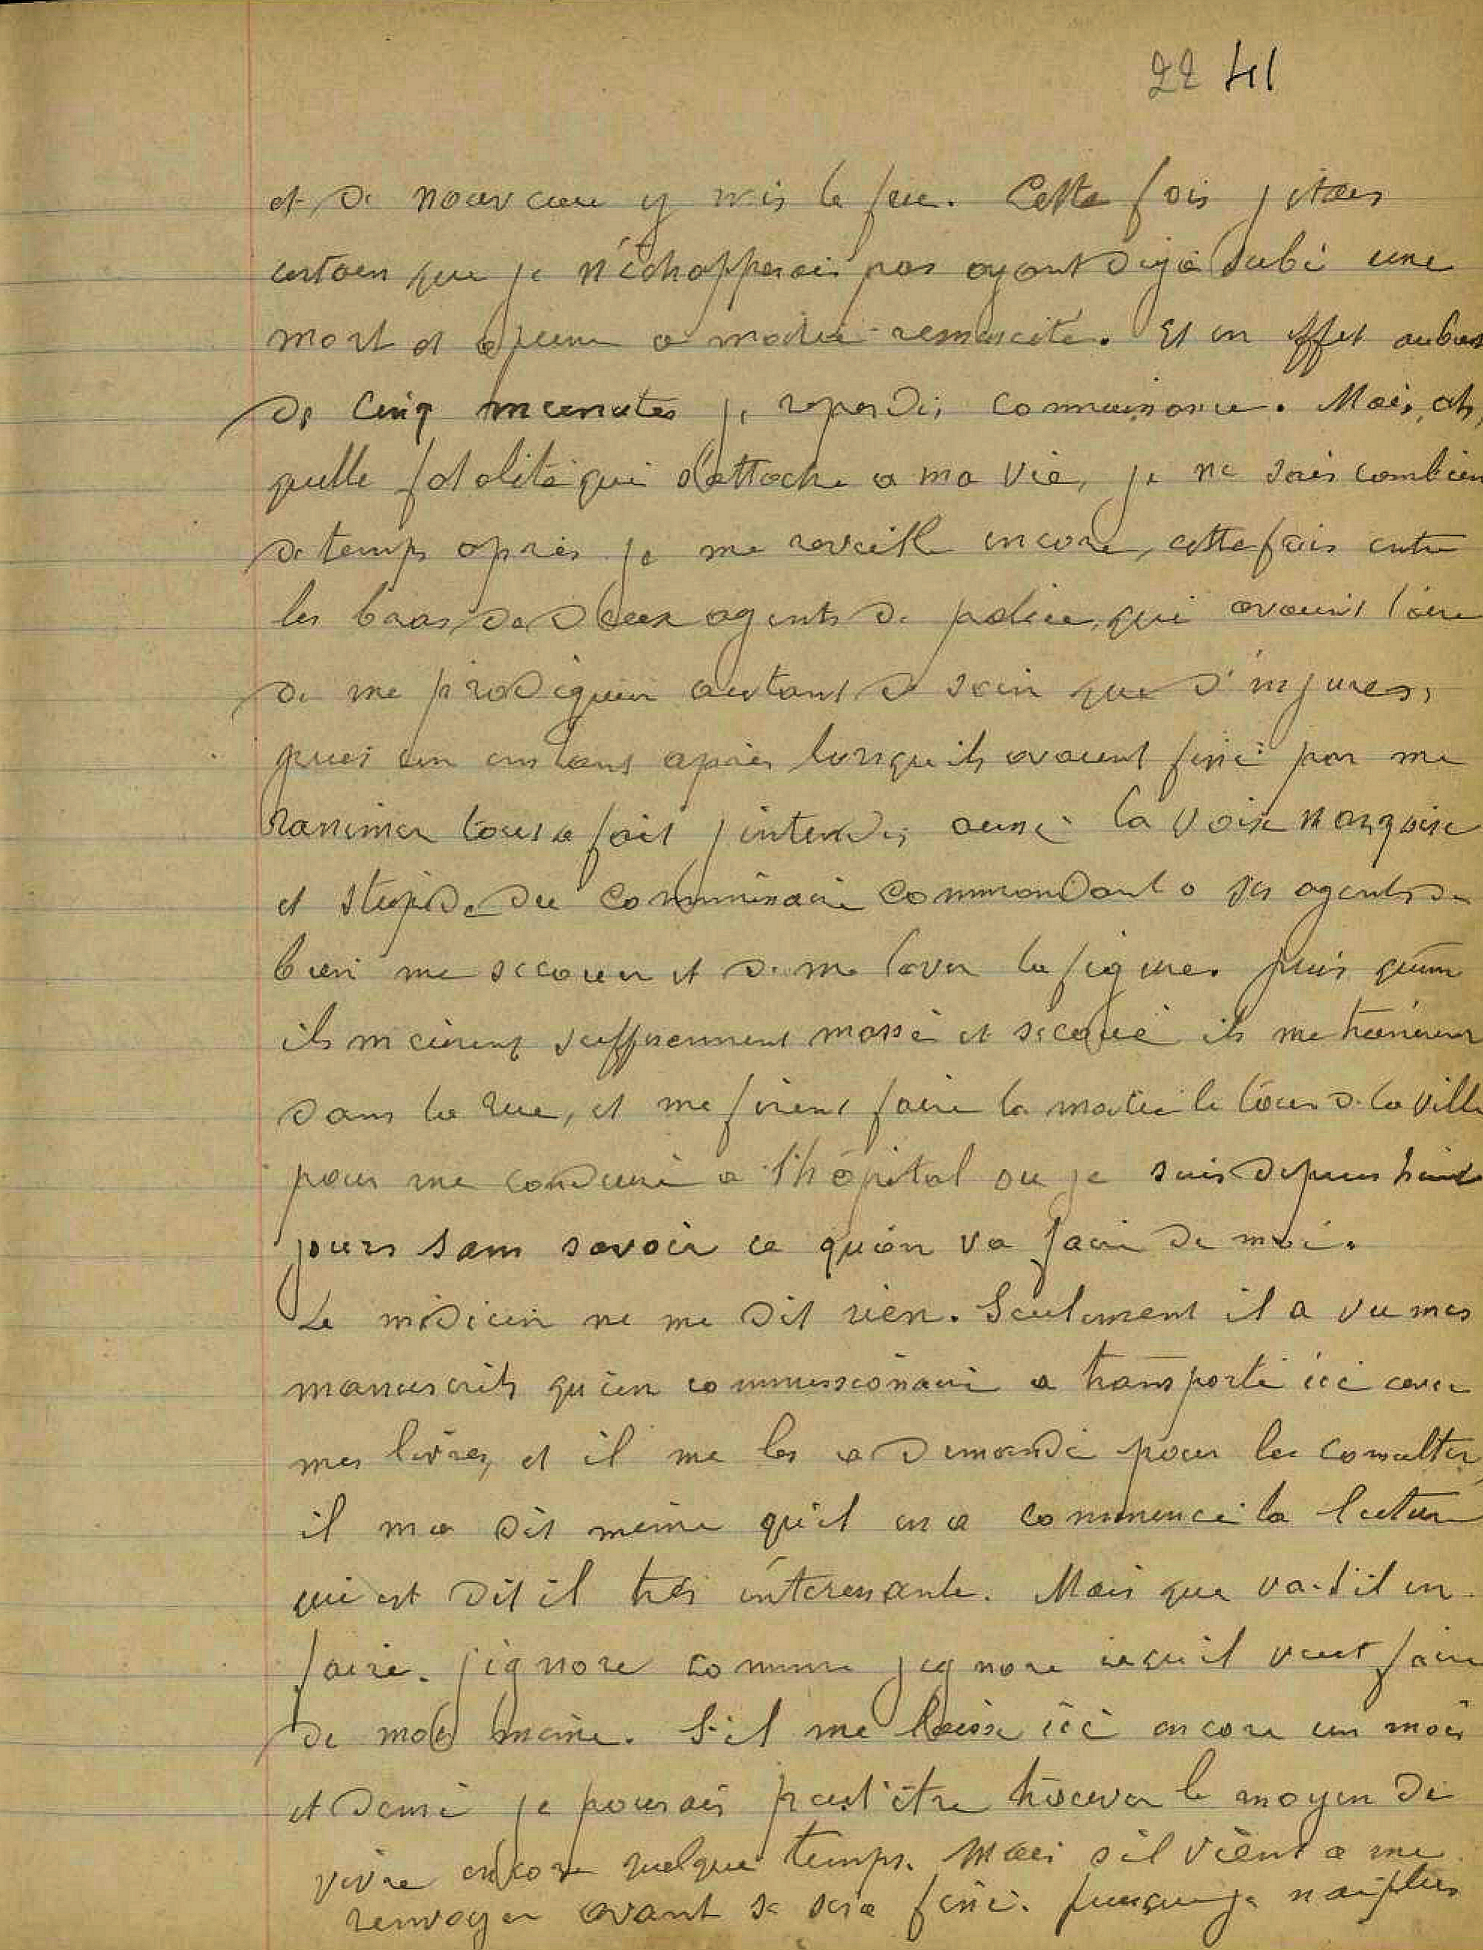 22 41
et de nouveau y mis le feu. Cette fois j'étais
certain que je n'échapperais pas ayant déjà subi une
mort et a peine a moitié ressuscité. Et en effet au bout
de cinq minutes je reperdis connaissance. Mais, ah,
quelle fatalité qui s'attache a ma vie, je ne sais combien
de temps après je me reveille encore, cette fois entre
les bras de deux agents de police, qui avaient l'air
de me prodiguer autant de soin que d'injures,
puis un instant après lorsqu'ils avaient fini par me
ranimer tout a fait j'entendis aussi la voix narquoise
et stupide du commissaire commandant a ses agents de
bien me secouer et de me laver la figure. puis quand
ils m'eurent suffisemment massé et secoué ils me trainèrent
dans la rue, et me firent faire la moitié le tour de la ville
pour me conduire a l'hôpital ou je suis depuis huit
jours sans savoir ce qu'on va faire de moi.
Le médicin ne me dit rien. Seulement il a vu mes
manuscrits qu'un commissionaire a transporté ici avec
mes livres, et il me les a demandé pour les consulter,
il m'a dit même qu'il en a commencé la lecture
qui est dit il très intéressante. Mais que va-t'il en
faire. j'ignore comme j'ignore ce qu'il veut faire
de moi même. S'il me laisse ici encore un mois
et demi je pourais peut'être trouver le moyen de
vivre encore quelque temps. Mais s'il vient a me
renvoyer avant se sera fini. puisque je n'ai plus